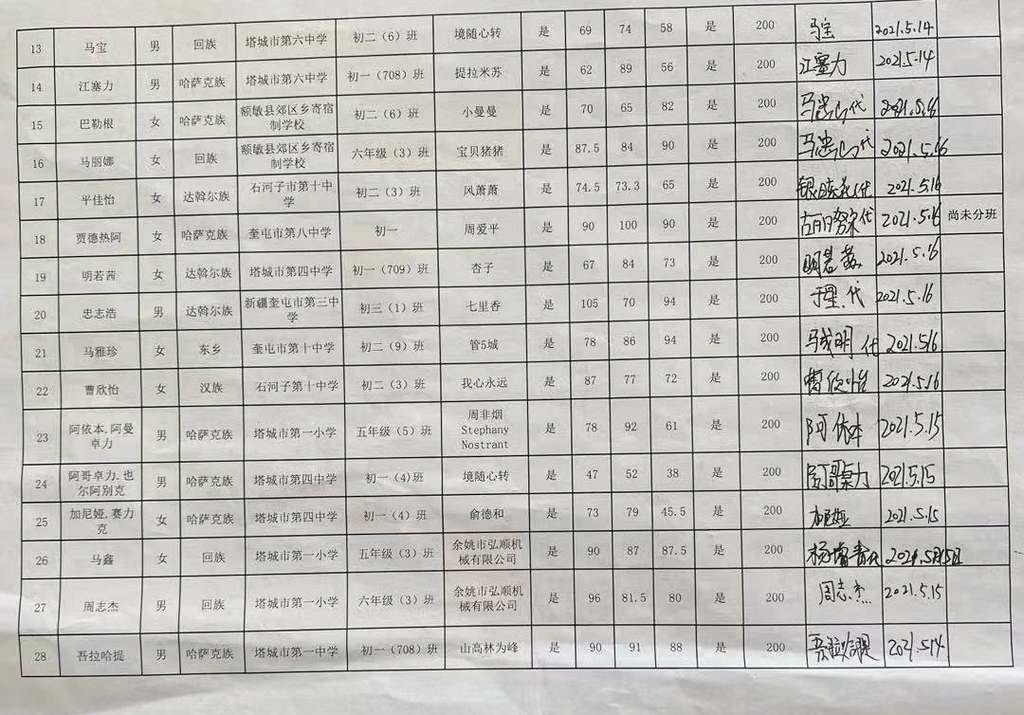 13 马宝 男 回族 塔城市第六中学 初二（6）班 境随心转 是 69 74 58 是 200 马宝 2021.5.14
14 江塞力 男 哈萨克族 塔城市第六中学 初一（708）班 提拉米苏 是 62 89 56 是 200 江塞力 2021.5.14
15 巴勒根 女 哈萨克族 额敏县郊区乡寄宿制学校 初二（6）班 小曼曼 是 70 65 82 是 200 代 2021.5.16
16 马丽娜 女 回族 额敏县郊区乡寄宿制学校 六年级（3）班 宝贝猪猪 是 87.5 84 90 是 200 代 2021.5.16
17 平佳怡 女 达斡尔族 石河子市第十中学 初二（3）班 风萧萧 是 74.5 73.3 65 是 200 代 2021.5.16
18 贾德热阿 女 哈萨克族 奎屯市第八中学 初一 周爱平 是 90 100 90 是 200 代 2021.5.16 尚未分班
19 明若茜 女 达斡尔族 塔城市第四中学 初一（709）班 杏子 是 67 84 73 是 200 明若茜 2021.5.16
20 忠志浩 男 达斡尔族 新疆奎屯市第三中学 初三（1）班 七里香 是 105 70 94 是 200 代 2021.5.16
21 马雅珍 女 东乡 奎屯市第十中学 初二（9）班 管5城 是 78 86 94 是 200 马成明 代 2021.5.16
22 曹欣怡 女 汉族 石河子第十中学 初二（3）班 我心永远 是 87 77 72 是 200 曹欣怡 2021.5.16
23 阿依本.阿曼卓力 男 哈萨克族 塔城市第一小学 五年级（5）班 周非烟 Stephany Nostrant 是 78 92 61 是 200 阿依本 2021.5.15
24 阿哥卓力.也尔阿别克 男 哈萨克族 塔城市第四中学 初一（4)班 境随心转 是 47 52 38 是 200 阿哥卓力 2021.5.15
25 加尼娅.赛力克 女 哈萨克族 塔城市第四中学 初一（4）班 俞德和 是 73 79 45.5 是 200 加尼娅 2021.5.15
26 马鑫 女 回族 塔城市第一小学 五年级（3）班 余姚市弘顺机械有限公司 是 90 87 87.5 是 200 2021.5月15日
27 周志杰 男 回族 塔城市第一小学 六年级（3）班 余姚市弘顺机械有限公司 是 96 81.5 80 是 200 周志杰 2021.5.15
28 吾拉哈提 男 哈萨克族 塔城市第一中学 初一（708）班 山高林为峰 是 90 91 88 是 200 吾拉哈提 2021.5.14